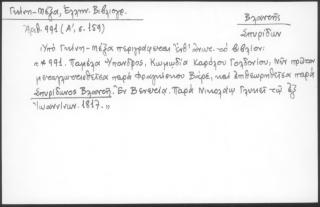 Γκίνη-Μέξα, Ελλην. Βιβλιογρ.
Ἀριθ. 991 (Α', σ. 159)
Βλαντῆς
Σπυρίδων
Ὑπὸ Γκίνη-Μέξα περιγράφεται τὸ βιβλίον:
"*991. Παμέλα Ὕπανδρος, Κωμῳδία Καρόλου Γολδονίου, Νῦν πρῶτον
μεταγλωττισθεῖσα παρὰ Φραγκίσκου καὶ ἐπιθεωρηθεῖσα παρὰ
Σπυρίδωνος Βλαντῆ. Ἐν Βενετίᾳ. Παρὰ Νικολάῳ Γλυκεῖ τῷ ἐξ
Ἰωαννίνων. 1817."